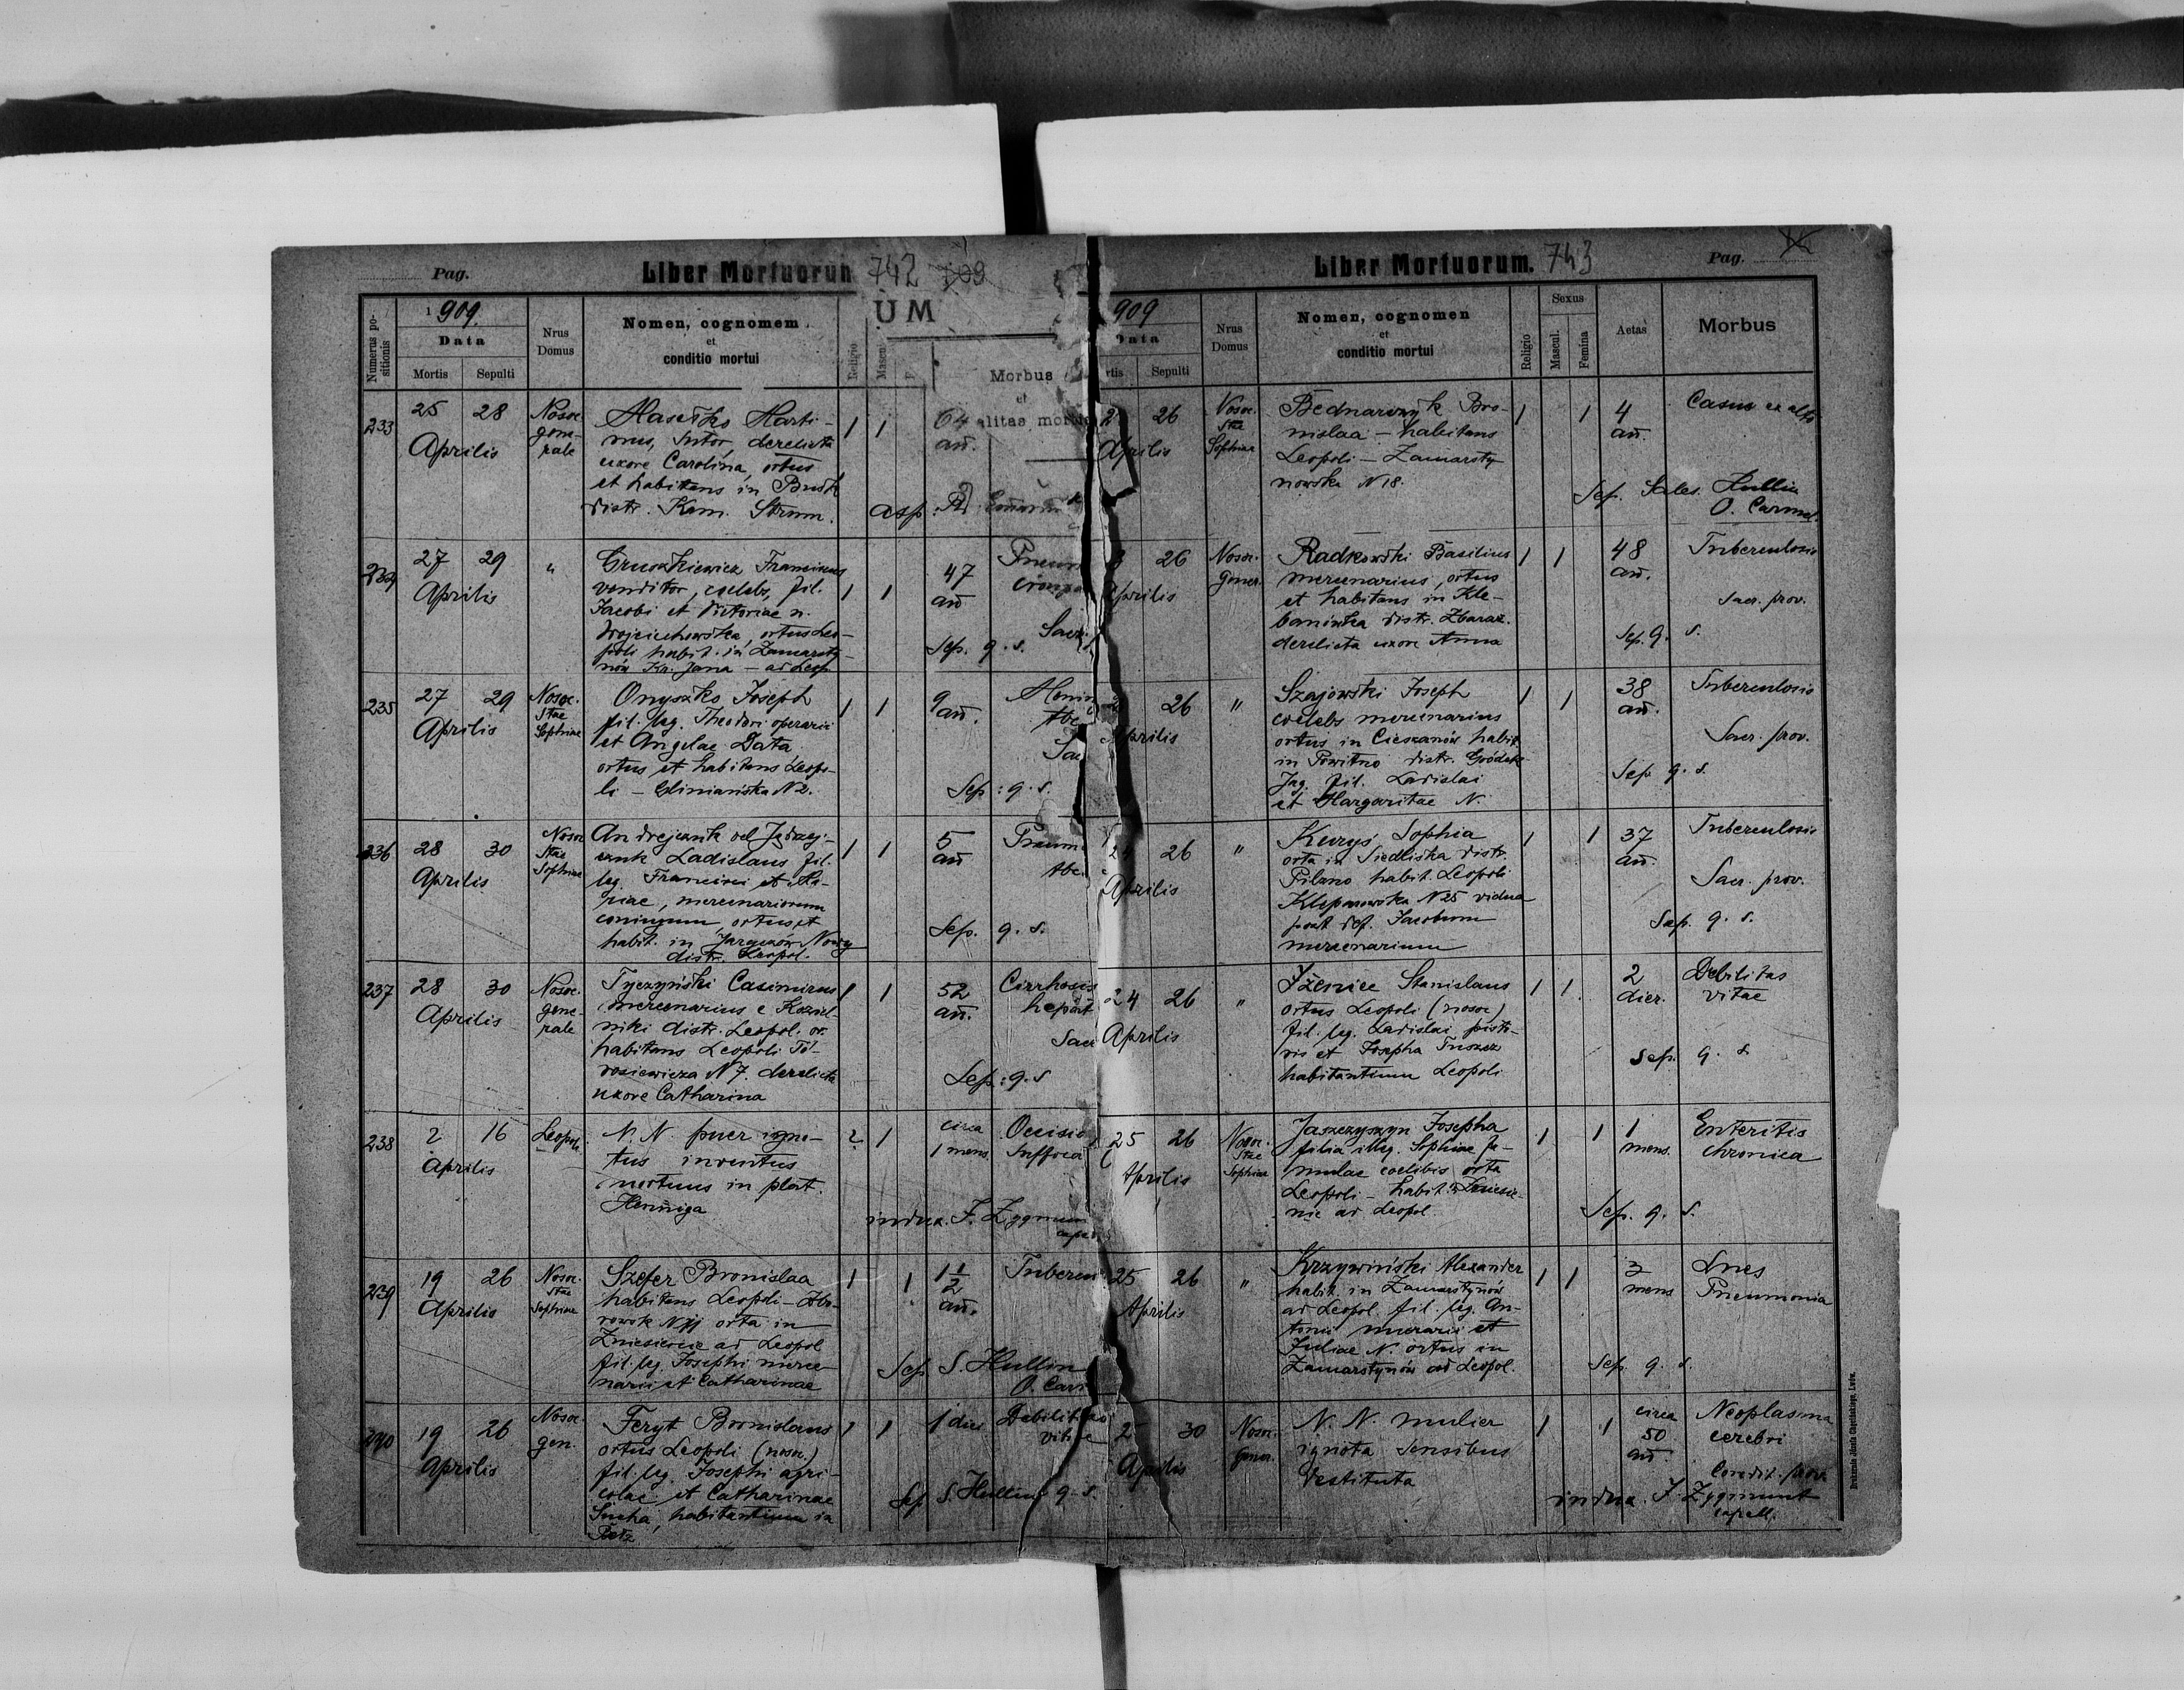 Pag.
Liber Mortuorum 742 709
UM
Numerus positionis
1909.
Data
Mortis
Sepulti
Nrus Domus
Nomen, cognomem
et
conditio mortui
Religio
Mascul.
Morbus
et
alitas morbi
233
25 28
Aprilis
Nosoc.
gene-
rale
Marti-
nus, sutor, derelicta
uxore Carolina, ortus
et habitans in Busk
distr. Kam. Strum.
1 1
64
an.
asp.
27 29
Aprilis
"
Gruszkiewicz Franciscus
venditor, coelebs, fil.
Jacobi et Victoriae n.
Wojciechowska, ortus Leo-
poli habit. in Zamarsty-
nów Kr. Jana - ad Leop.
1 1
47
an
Sep. q. s.
235
27 29
Aprilis
Nosoc.
Stae
Sophiae
Onyszko Joseph
fil. leg. Theodori operarii
et Angelae Data
ortus et habitans Leopo-
li - Gliniańska N 2.
1 1
9
an.
Sep: q. s.
236
28 30
Aprilis
Nosoc
Stae
Sophiae
Andrejczuk vel Jędrzej-
czuk Ladislaus fil.
leg. Francisci et Ma-
riae, mercenariorum
coniugum, ortus et
habit. in Jaryczów Nowy
distr. Leopol.
1 1
5
an
Sep. q. s.
237
28 30
Aprilis
Nosoc.
gene-
rale
Tyczyński Casimirus
mercenarius e Koziel-
niki distr. Leopol. or.
habitans Leopoli To-
rosiewicza N 7. derelicta
uxore Catharina
1 1
52
an.
Cirrhosis
hepat
Sep: q. s
238
2 16
Aprilis
Leopol.
N. N puer igno-
tus inventus
mortuus in plat.
Henniga
? 1
circa
1 mens.
Occisio
Suffoca
indux. J. Zygmun
239
19 26
Aprilis
Nosoc.
Stae
Sophiae
Szefer Bronislaa
habitans Leopoli - Zbo-
rowsk orta in
Zniesienie ad Leopol
fil. leg. Josephi merce-
narii et Catharinae
1 1
1 1/2
an.
Tubercu
Sep S. Hullin
O. Car
240
19 26
Aprilis
Nosoc.
gen.
Feryt Bronislaus
ortus Leopoli (nosoc.)
fil. leg. Josephi agri-
colae et Catharinae
Sucha, habitantium in
1 1
1 diei
Debilitas
vitae
Sep S. Hullin q. s.
Liber Mortuorum. 743
Pag.
909
Data
Sepulti
Nrus Domus
Nomen, cognomen
et
conditio mortui
Religio
Sexus
Mascul.
Femina
Aetas
Morbus
26
Aprilis
Nosoc.
Stae
Sophiae
Bednarczyk Bro-
nislaa - habitans
Leopoli - Zamarsty
nowska N 18.
1 1
4
an.
Casus ex alto
Sep. Sales. Hullin
O. Carmel.
26
Aprilis
Nosoc.
gener.
Radkowski Basilius
mercenarius, ortus
et habitans in Kle-
banówka distr. Zbaraż.
derelicta uxore Anna
1 1
48
an.
Tuberculosis
Sacr. prov.
Sep. q. s.
26
Aprilis
"
Szajowski Joseph
coelebs mercenarius
ortus in Cieszanów habit.
in Powitno distr. Gródek
Jag. fil. Ladislai
et Margaritae N.
1 1
38
an.
Tuberculosis
Sacr. prov.
Sep. q. s.
24 26
Aprilis
"
Kuryś Sophia
orta in Siedliska distr.
Pilzno habit. Leopoli
Kleparowska N 25 vidua
post def. Jacobum
mercenarium
1 1
37
an.
Tuberculosis
Sacr. prov.
Sep. q. s.
24 26
Aprilis
"
Stanislaus
ortus Leopoli (nosoc)
fil. leg. Ladislai pisto-
ris et Josepha Tuszcz
habitantium Leopoli
1 1
2
dier.
Debilitas
vitae
Sep. q. s.
25 26
Aprilis
Nosoc.
Stae
Sophiae
Jaszczyszyn Josepha
filia illeg. Sophiae fa-
mulae coelibis orta
Leopoli - habit. in Zniesie-
nie ad Leopol
1 1
1
mens.
Enteritis
chronica
Sep. q. s.
25 26
Aprilis
"
Krzywiński Alexander
habit. in Zamarstynów
ad Leopol. fil. leg. An-
tonii murarii et
Juliae N. ortus in
Zamarstynów ad Leopol.
1 1
3
mens
Lues
Pneumonia
Sep. q. s.
25 30
Aprilis
Nosoc.
Gener.
N. N. mulier
ignota sensibus
destituta
1 1
circa
50
an.
Neoplasma
cerebri
Condit. prov.
indux. J. Zygmunt
capell.